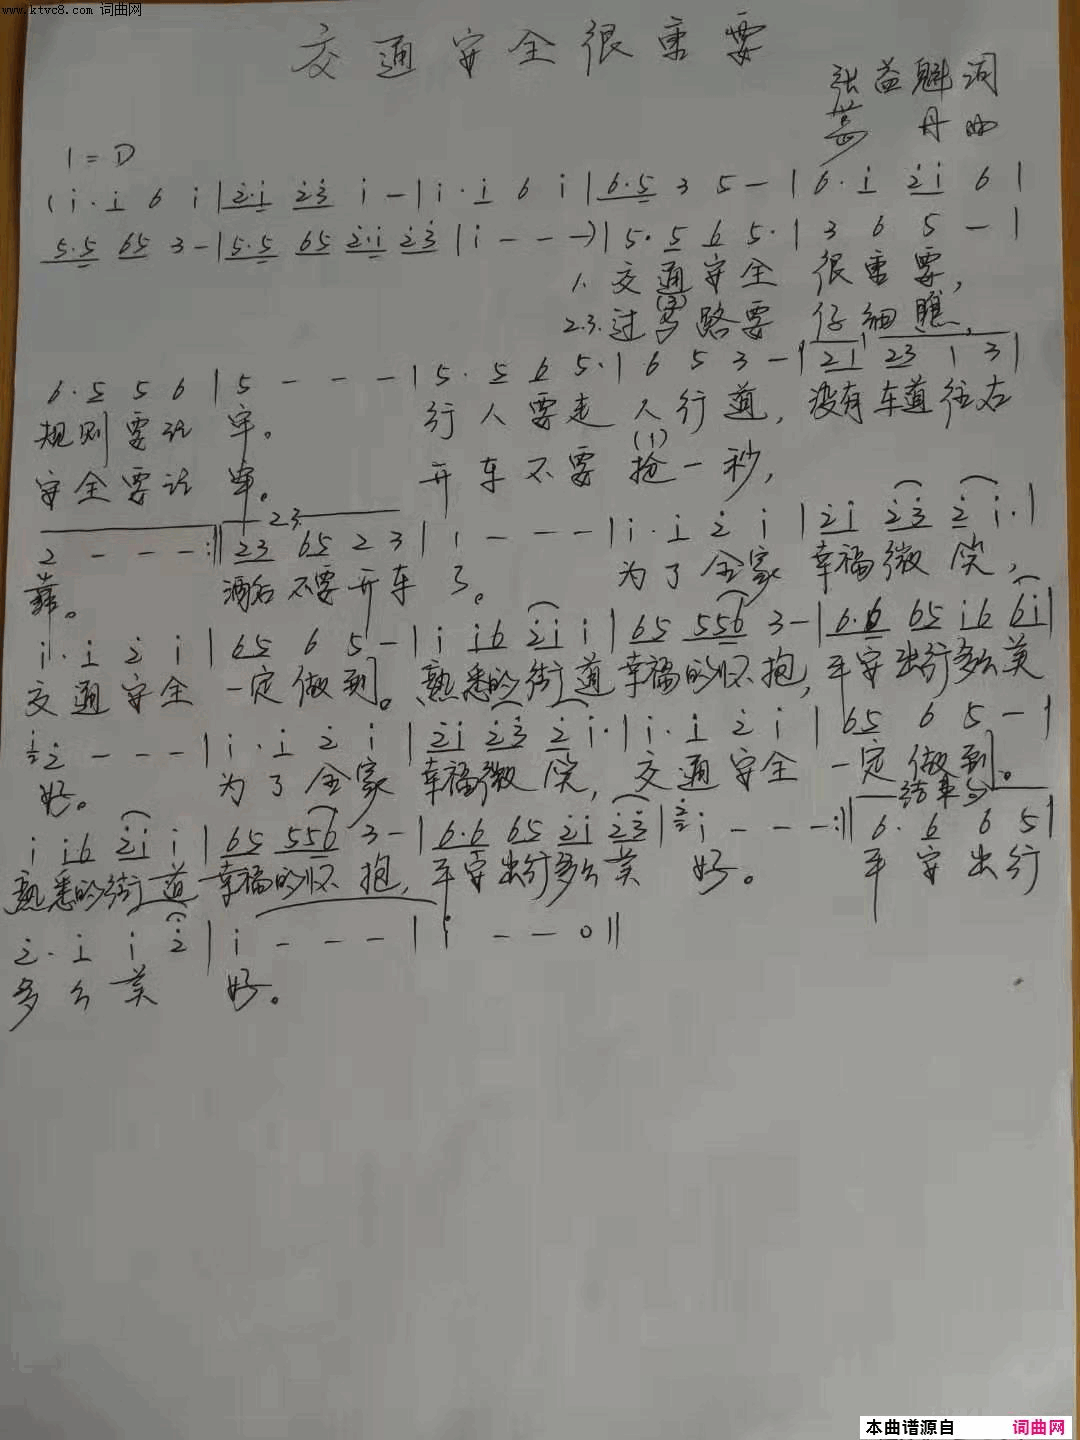 www.ktvc8.com 词曲网
交通安全很重要
张益魁词
丹曲
1=D
(i·i 6 i|2·i 23 i -|i·i 6 i|6·5 3 5 -|6·i 2i 6|
5·5 65 3 -|5·5 65 2·i 23|i - - -)|5·5 6 5·|3 6 5 -|
1.交通安全 很重要,
2.3.过马路要 仔细瞧,
6·5 5 6|5 - - -|5·5 6 5·|6 5 3 -|21 23 1 3|
规则要记牢。 行人要走 人行道,没有车道往右
(1)
安全要记牢。 开车不要 抢一秒,
2.3.
2 - - -:||23 65 2 3|1 - - -|i·i 2 i|2i 23 2 i·|
靠。 酒后不要开车了。 为了全家 幸福微笑,
i·i 2 i|65 6 5 -|i i6 2i i|65 556 3 -|6·6 65 i6 6i|
交通安全 一定做到。熟悉的街道幸福的怀抱,平安出行多么美
2 - - -|i·i 2 i|2i 23 2 i·|i·i 2 i|65 6 5 -|
好。 为了全家 幸福微笑,交通安全 一定做到。
结束句
i i6 2i i|65 556 3 -|6·6 65 2i 23|i - - -:||6·6 6 5|
熟悉的街道幸福的怀抱,平安出行多么美 好。 平安出行
2·i i 2|i - - -|i - - 0||
多么美 好。
本曲谱源自 词曲网